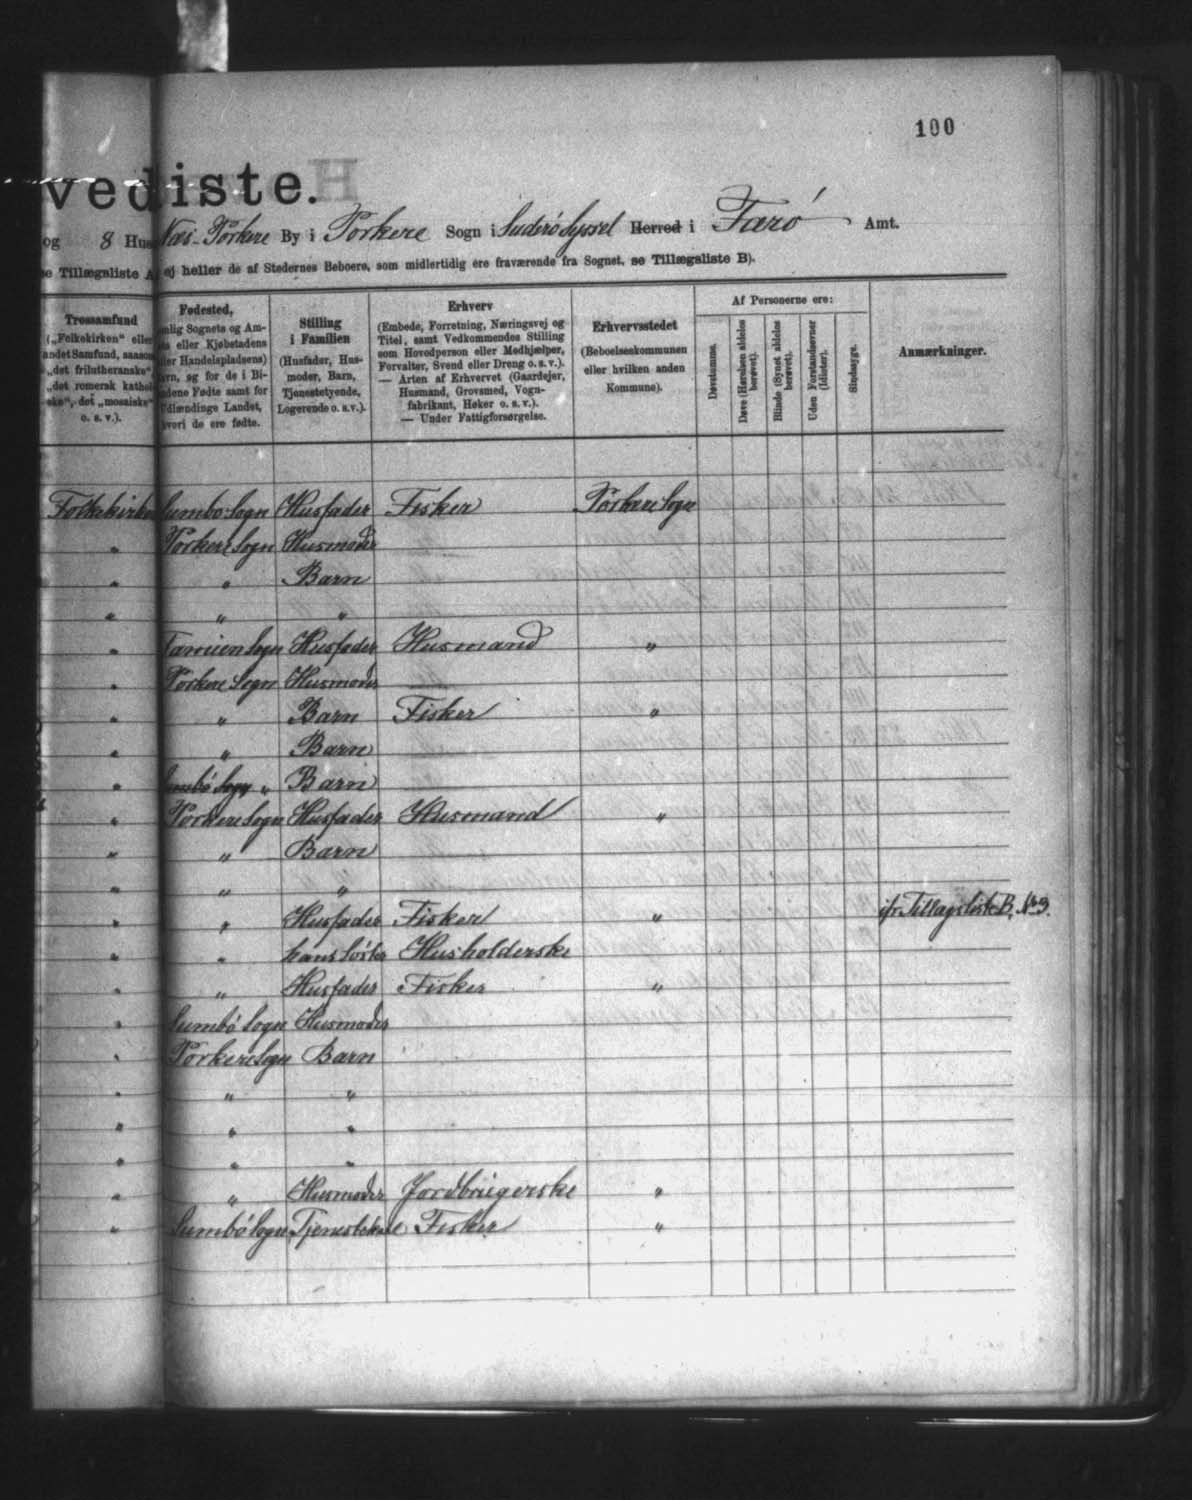 100
vediste.
og 8 Hus Næs-Porkere By i Porkere Sogn i Suderø Syssel Herred i Færø Amt.
se Tillægsliste A ej heller de af Stedernes Beboere, som midlertidig ere fraværende fra Sognet, se Tillægsliste B).
Trossamfund
(„Folkekirken“ eller
andet Samfund, saasom
„det frilutheranske“,
„det romersk kathol
ske“, det „mosaiske“
o. s. v.).
Fødested,
nlig Sognets og Am-
eller Kjøbstadens
ler Handelspladsens)
avn, og for de i Bi-
dene Fødte samt for
Udlændinge Landet,
hvori de ere fødte.
Stilling
i Familien
(Husfader, Hus-
moder, Barn,
Tjenestetyende,
Logerende o. s. v.).
Erhverv
(Embede, Forretning, Næringsvej og
Titel, samt Vedkommendes Stilling
som Hovedperson eller Medhjælper,
Forvalter, Svend eller Dreng o. s. v.).
— Arten af Erhvervet (Gaardejer,
Husmand, Grovsmed, Vogn-
fabrikant, Høker o. s. v.).
— Under Fattigforsørgelse.
Erhvervsstedet
(Beboelseskommunen
eller hvilken anden
Kommune).
Af Personerne ere:
Døvstumme.
Døve (Hørelsen aldeles
berøvet).
Blinde (Synet aldeles
berøvet).
Uden Forstandsevner
(Idioter).
Sindssyge.
Anmærkninger.
Folkekirken Sumbø Sogn Husfader Fisker Porkere Sogn
" Porkere Sogn Husmoder
" " Barn
" " "
" Famien Sogn Husfader Husmand "
" Porkere Sogn Husmoder
" " Barn Fisker "
" " Barn
" Sumbø Sogn " Barn
" Porkere Sogn Husfader Husmand "
" " Barn
" " "
" " Husfader Fisker " ifr. Tillægsliste B. No 3.
" " hans Søster Husholderske
" " Husfader Fisker "
" Sumbø Sogn Husmoder
" Porkere Sogn Barn
" " "
" " "
" " "
" " Husmoder Jordbrugerske "
" Sumbø Sogn Tjenestekarl Fisker "